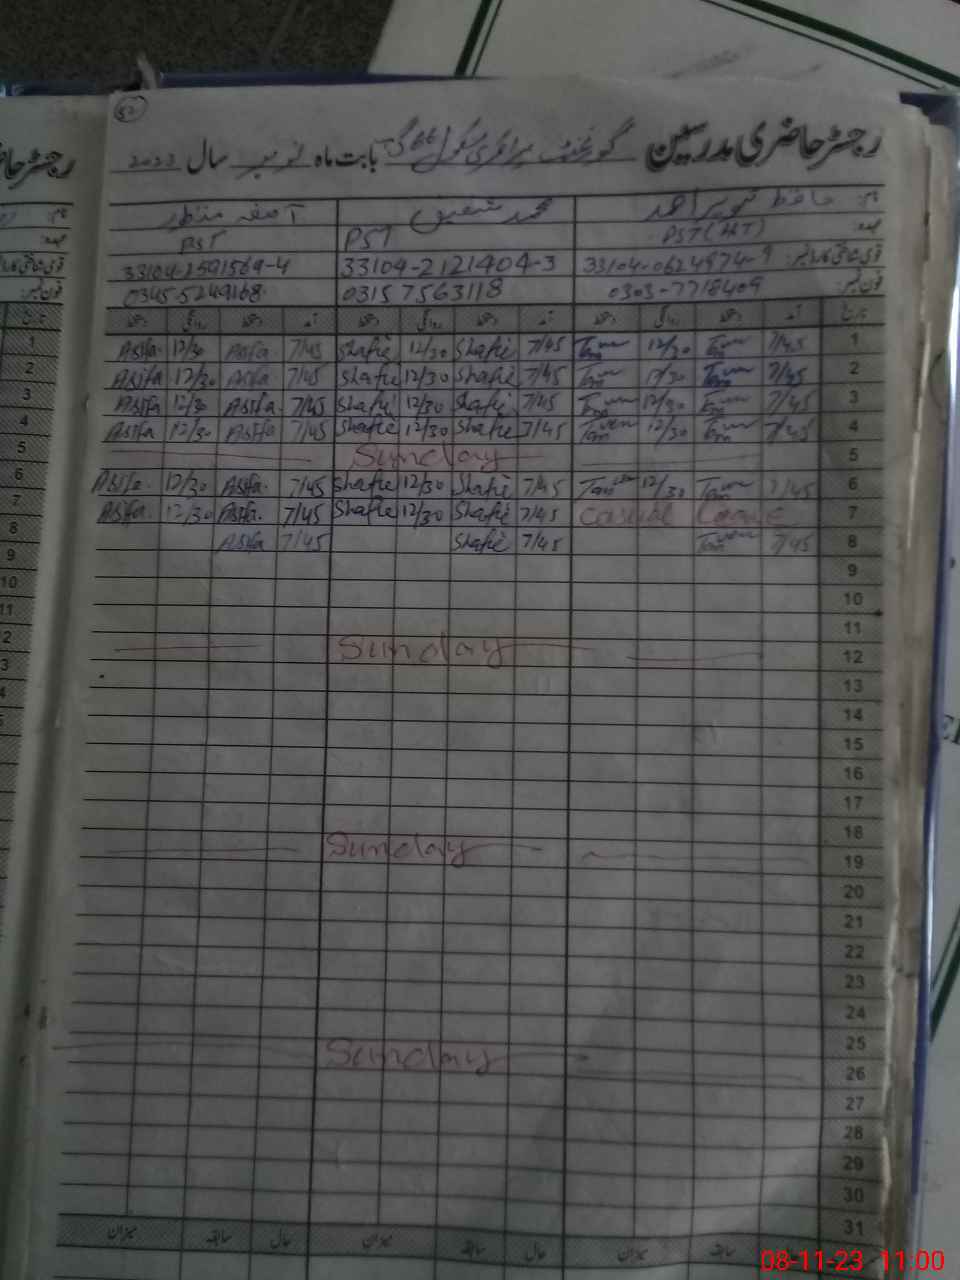 52
رجسٹر حاضری مدرسین گورنمنٹ پرائمری سکول 66 گ ب بابت ماہ نومبر سال 2023
نام: حافظ تنویر احمد محمد شفیق آصفہ منظور
عہدہ: PST (HT) PST PST
قومی شناختی کارڈ نمبر: 33104-0624974-9 33104-2121404-3 33104-2591569-4
فون نمبر: 0303-7718409 03157563118 0345-5249168
تاریخ آمد دستخط روانگی دستخط آمد دستخط روانگی دستخط آمد دستخط روانگی دستخط
Asifa 12/30 Asifa 7/45 Shafie 12/30 Shafie 7/45 12/30 7/45 1
Asifa 12/30 Asifa 7/45 Shafie 12/30 Shafie 7/45 12/30 7/45 2
Asifa 12/30 Asifa 7/45 Shafie 12/30 Shafie 7/45 12/30 7/45 3
Asifa 12/30 Asifa 7/45 Shafie 12/30 Shafie 7/45 12/30 7/45 4
Sunday 5
Asifa 12/30 Asifa 7/45 Shafie 12/30 Shafie 7/45 12/30 7/45 6
Asifa 12/30 Asifa 7/45 Shafie 12/30 Shafie 7/45 Casual Leave 7
Asifa 7/45 Shafie 7/45 7/45 8
9
10
11
Sunday 12
13
14
15
16
17
18
Sunday 19
20
21
22
23
24
25
Sunday 26
27
28
29
30
31
حال سابقہ میزان حال سابقہ میزان حال سابقہ میزان
08-11-23 11:00